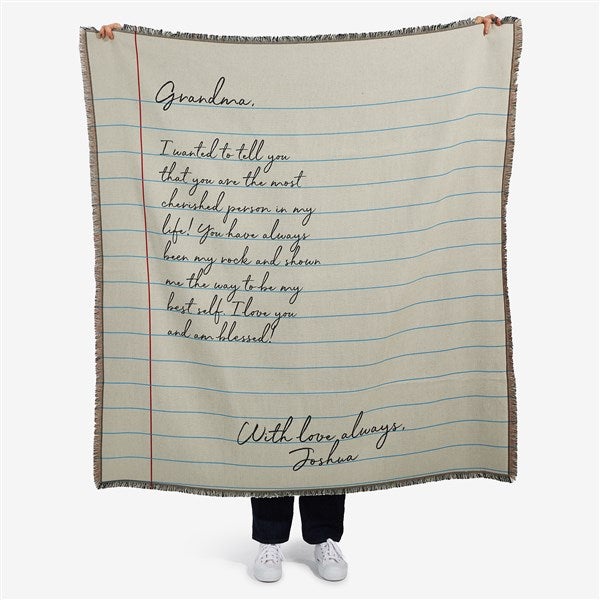 Grandma,
I wanted to tell you
that you are the most
cherished person in my
life! You have always
been my rock and shown
me the way to be my
best self. I love you
and am blessed!
With love always,
Joshua